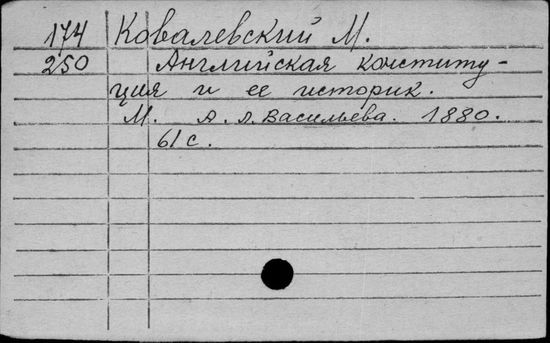 174 Ковалевский М.
250 Английская конститу-
ция и ее историк.
М. А.Л. Васильева. 1880.
61 с.